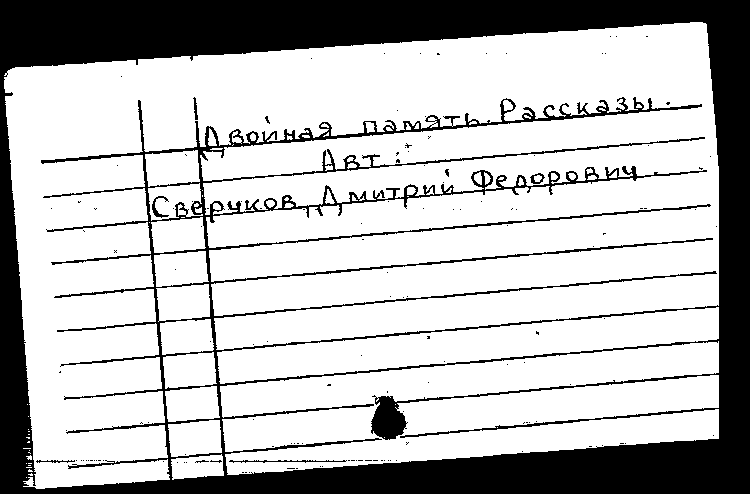 Двойная память. Рассказы.
Авт.:
Сверчков, Дмитрий Федорович.